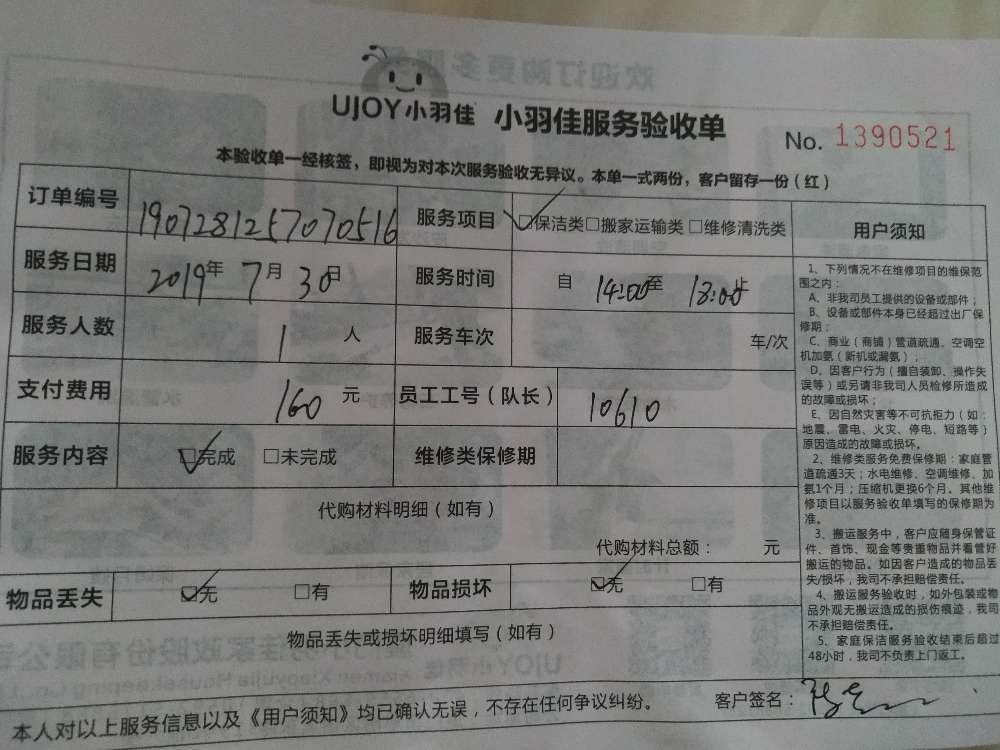 UJOY小羽佳 小羽佳服务验收单
No. 1390521
本验收单一经核签，即视为对本次服务验收无异议。本单一式两份，客户留存一份（红）
订单编号 1907281257070516 服务项目 □保洁类□搬家运输类 □维修清洗类
服务日期 2019年 7月 30日 服务时间 自 14:00至 18:00止
服务人数 1 人 服务车次 车/次
支付费用 160 元 员工工号（队长） 10610
服务内容 □完成 □未完成 维修类保修期
代购材料明细（如有）
代购材料总额： 元
物品丢失 □无 □有 物品损坏 □无 □有
物品丢失或损坏明细填写（如有）
用户须知
1、下列情况不在维修项目的维保范
围之内：
A、非我司员工提供的设备或部件；
B、设备或部件本身已经超过出厂保
修期；
C、商业（商铺）管道疏通、空调空
机加氨（新机或漏氨）；
D、因客户行为（擅自装卸、操作失
误等）或另请非我司人员检修所造成
的故障或损坏；
E、因自然灾害等不可抗拒力（如：
地震、雷电、火灾、停电、短路等）
原因造成的故障或损坏。
2、维修类服务免费保修期：家庭管
道疏通3天；水电维修、空调维修、加
氨1个月；压缩机更换6个月。其他维
修项目以服务验收单填写的保修期为
准。
3、搬运服务中，客户应随身保管证
件、首饰、现金等贵重物品并看管好
搬运的物品。如因客户造成的物品丢
失/损坏，我司不承担赔偿责任。
4、搬运服务验收时，如外包装或物
品外观无搬运造成的损伤痕迹，我司
不承担赔偿责任。
5、家庭保洁服务验收结束后超过
48小时，我司不负责上门返工。
本人对以上服务信息以及《用户须知》均已确认无误，不存在任何争议纠纷。 客户签名：